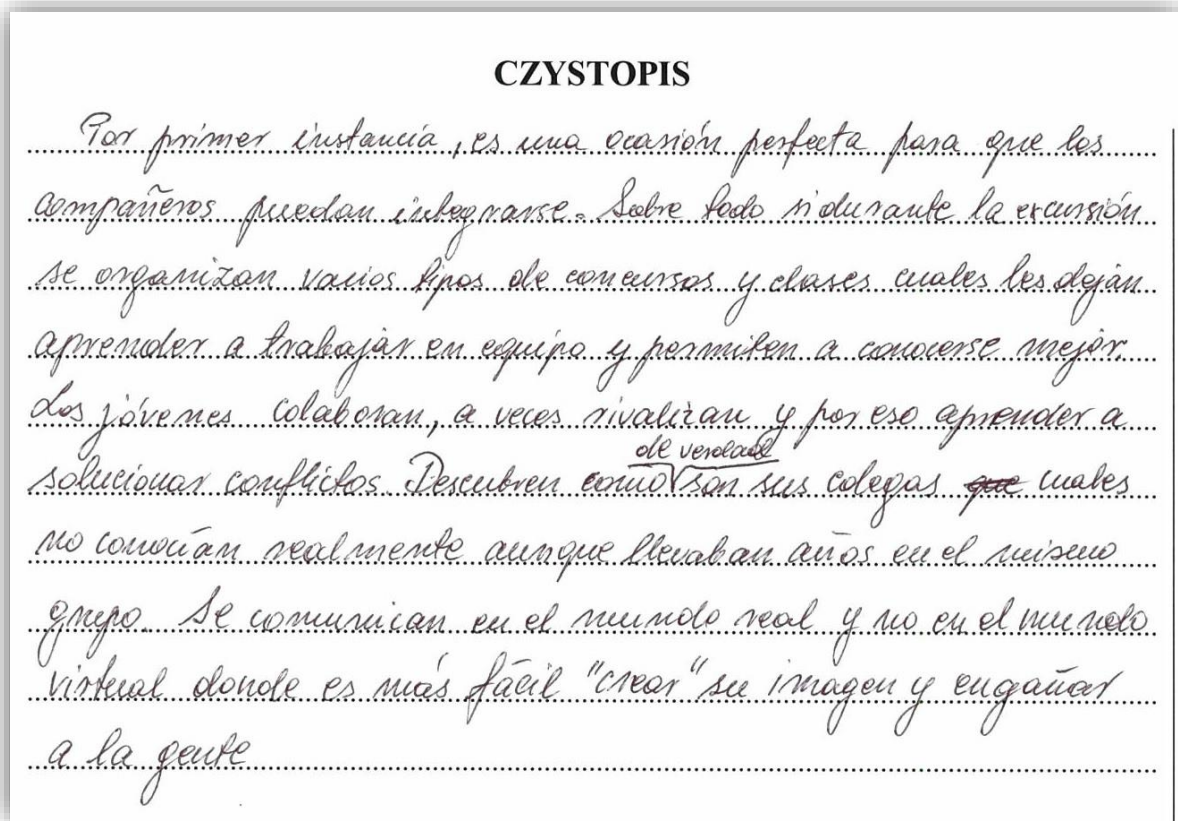 CZYSTOPIS
Por primer instancia, es una ocasión perfecta para que los
compañeros puedan integrarse. Sobre todo si durante la excursión
se organizan varios tipos de concursos y clases cuales les deján
aprender a trabajar en equipo y permiten a conocerse mejor.
Los jóvenes colaboran, a veces rivalizan y por eso aprender a
de verdad
solucionar conflictos. Descubren como son sus colegas que cuales
no conocían realmente aunque llevaban años en el mismo
grupo. Se comunican en el mundo real y no en el mundo
virtual donde es más fácil "crear" su imagen y engañar
a la gente